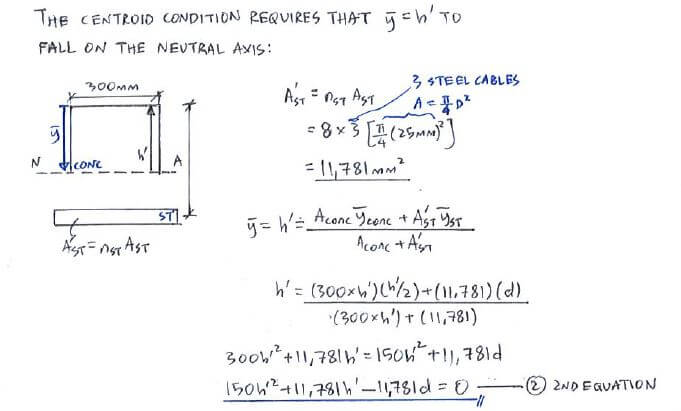 THE CENTROID CONDITION REQUIRES THAT ȳ = h' TO
FALL ON THE NEUTRAL AXIS:
300MM
ȳ
h'
N
CONC
A
ST
A'ST = nST AST
3 STEEL CABLES
A'ST = nST AST
A = π/4 D²
= 8 × 3 [π/4 (25MM)²]
= 11,781 MM²
ȳ = h' = (ACONC ȳCONC + A'ST ȳST) / (ACONC + A'ST)
h' = ((300×h')(h'/2) + (11,781)(d)) / ((300×h') + (11,781))
300h'² + 11,781h' = 150h'² + 11,781d
150h'² + 11,781h' − 11,781d = 0 ② 2ND EQUATION